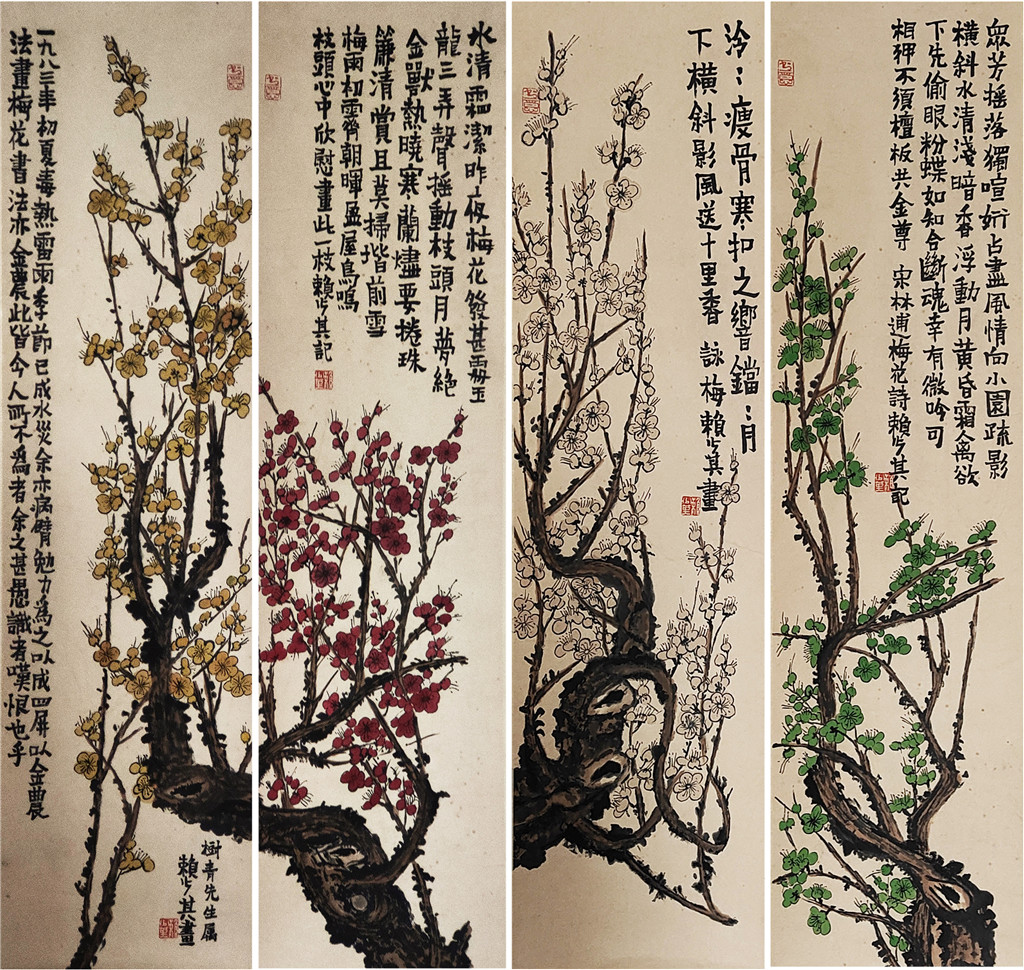 眾芳摇落獨喧妍占盡風情向小園疏影
横斜水清淺暗香浮動月黄昏霜禽欲
下先偷眼粉蝶如知合斷魂幸有微吟可
相狎不須檀板共金尊 宋林逋梅花詩賴少其記
泠:瘦骨寒扣之響鐺:月
下横斜影風送十里香 詠梅賴少其畫
冰清霜潔昨夜梅花發甚雾玉
龍三弄聲摇動枝頭月夢絶
金獸熱曉寒蘭燼要捲珠
簾清賞且莫掃堦前雪
梅雨初霽朝暉盈屋鳥鳴
枝頭心中欣慰畫此一枝賴少其記
一九八三年初夏毒熱雷雨季節已成水災余亦病臂勉力為之以成四屏以金農
法畫梅花書法亦金農此皆今人所不為者余之甚愚識者嘆恨也乎
樹青先生属
賴少其畫